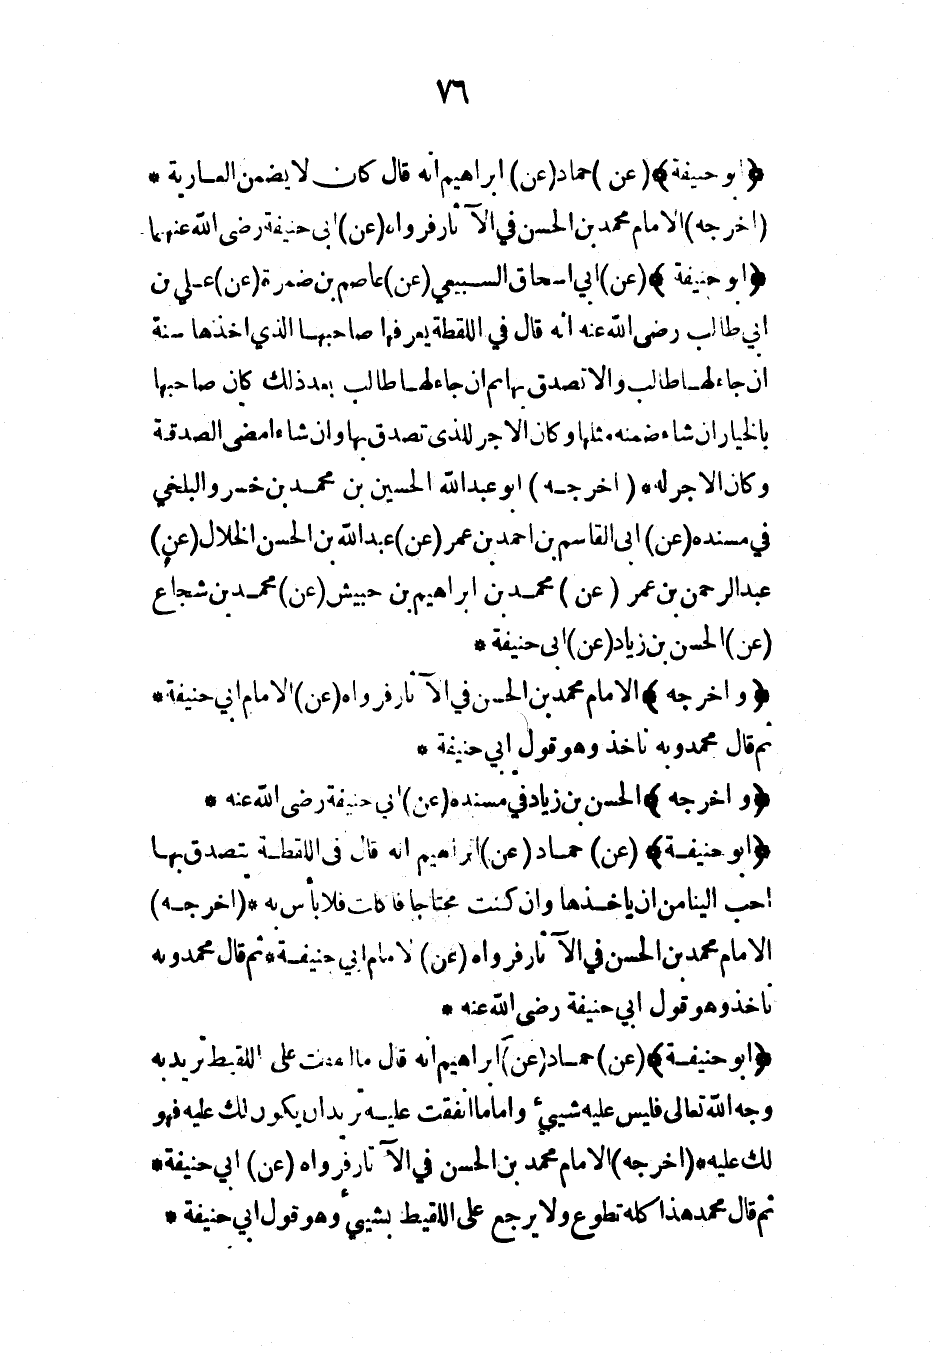 ٧٦
﴿ابو حنيفة﴾(عن)حماد(عن)ابراهيم انه قال كان لا يضمن العارية *
(اخرجه)الامام محمد بن الحسن في الآثار فرواه(عن)ابى حنيفة رضى الله عنهما
﴿ابو حنيفة﴾(عن)ابي اسحاق السبيعي(عن)عاصم بن ضمرة(عن)علي بن
ابي طالب رضى الله عنه انه قال في اللقطة يعرفها صاحبها الذي اخذها سنة
ان جاء لها طالب والا تصدق بها ثم ان جاء لها طالب بعد ذلك كان صاحبها
بالخيار ان شاء ضمنه مثلها وكان الاجر للذى تصدق بها وان شاء امضى الصدقة
وكان الاجر له *(اخرجه)ابو عبد الله الحسين بن محمد بن خسرو البلخي
في مسنده(عن)ابى القاسم بن احمد بن عمر(عن)عبد الله بن الحسن الخلال(عن)
عبد الرحمن بن عمر(عن)محمد بن ابراهيم بن حبيش(عن)محمد بن شجاع
(عن)الحسن بن زياد(عن)ابى حنيفة *
﴿و اخرجه﴾الامام محمد بن الحسن في الآثار فرواه(عن)الامام ابي حنيفة *
ثم قال محمد وبه ناخذ وهو قول ابي حنيفة *
﴿و اخرجه﴾الحسن بن زياد في مسنده(عن)ابي حنيفة رضى الله عنه *
﴿ابو حنيفة﴾(عن)حماد(عن)ابراهيم انه قال فى اللقطة يتصدق بها
احب الينا من ان ياخذها وان كنت محتاجا فاكات فلا بأس به *(اخرجه)
الامام محمد بن الحسن في الآثار فرواه(عن)الامام ابي حنيفة * ثم قال محمد وبه
ناخذ وهو قول ابي حنيفة رضى الله عنه *
﴿ابو حنيفة﴾(عن)حماد(عن)ابراهيم انه قال ما انفقت على اللقيط تريد به
وجه الله تعالى فليس عليه شيئ واما ما انفقت عليه تريد ان يكون لك عليه فهو
لك عليه *(اخرجه)الامام محمد بن الحسن في الآثار فرواه(عن)ابي حنيفة *
ثم قال محمد هذا كله تطوع ولا يرجع على اللقيط بشيئ وهو قول ابي حنيفة *